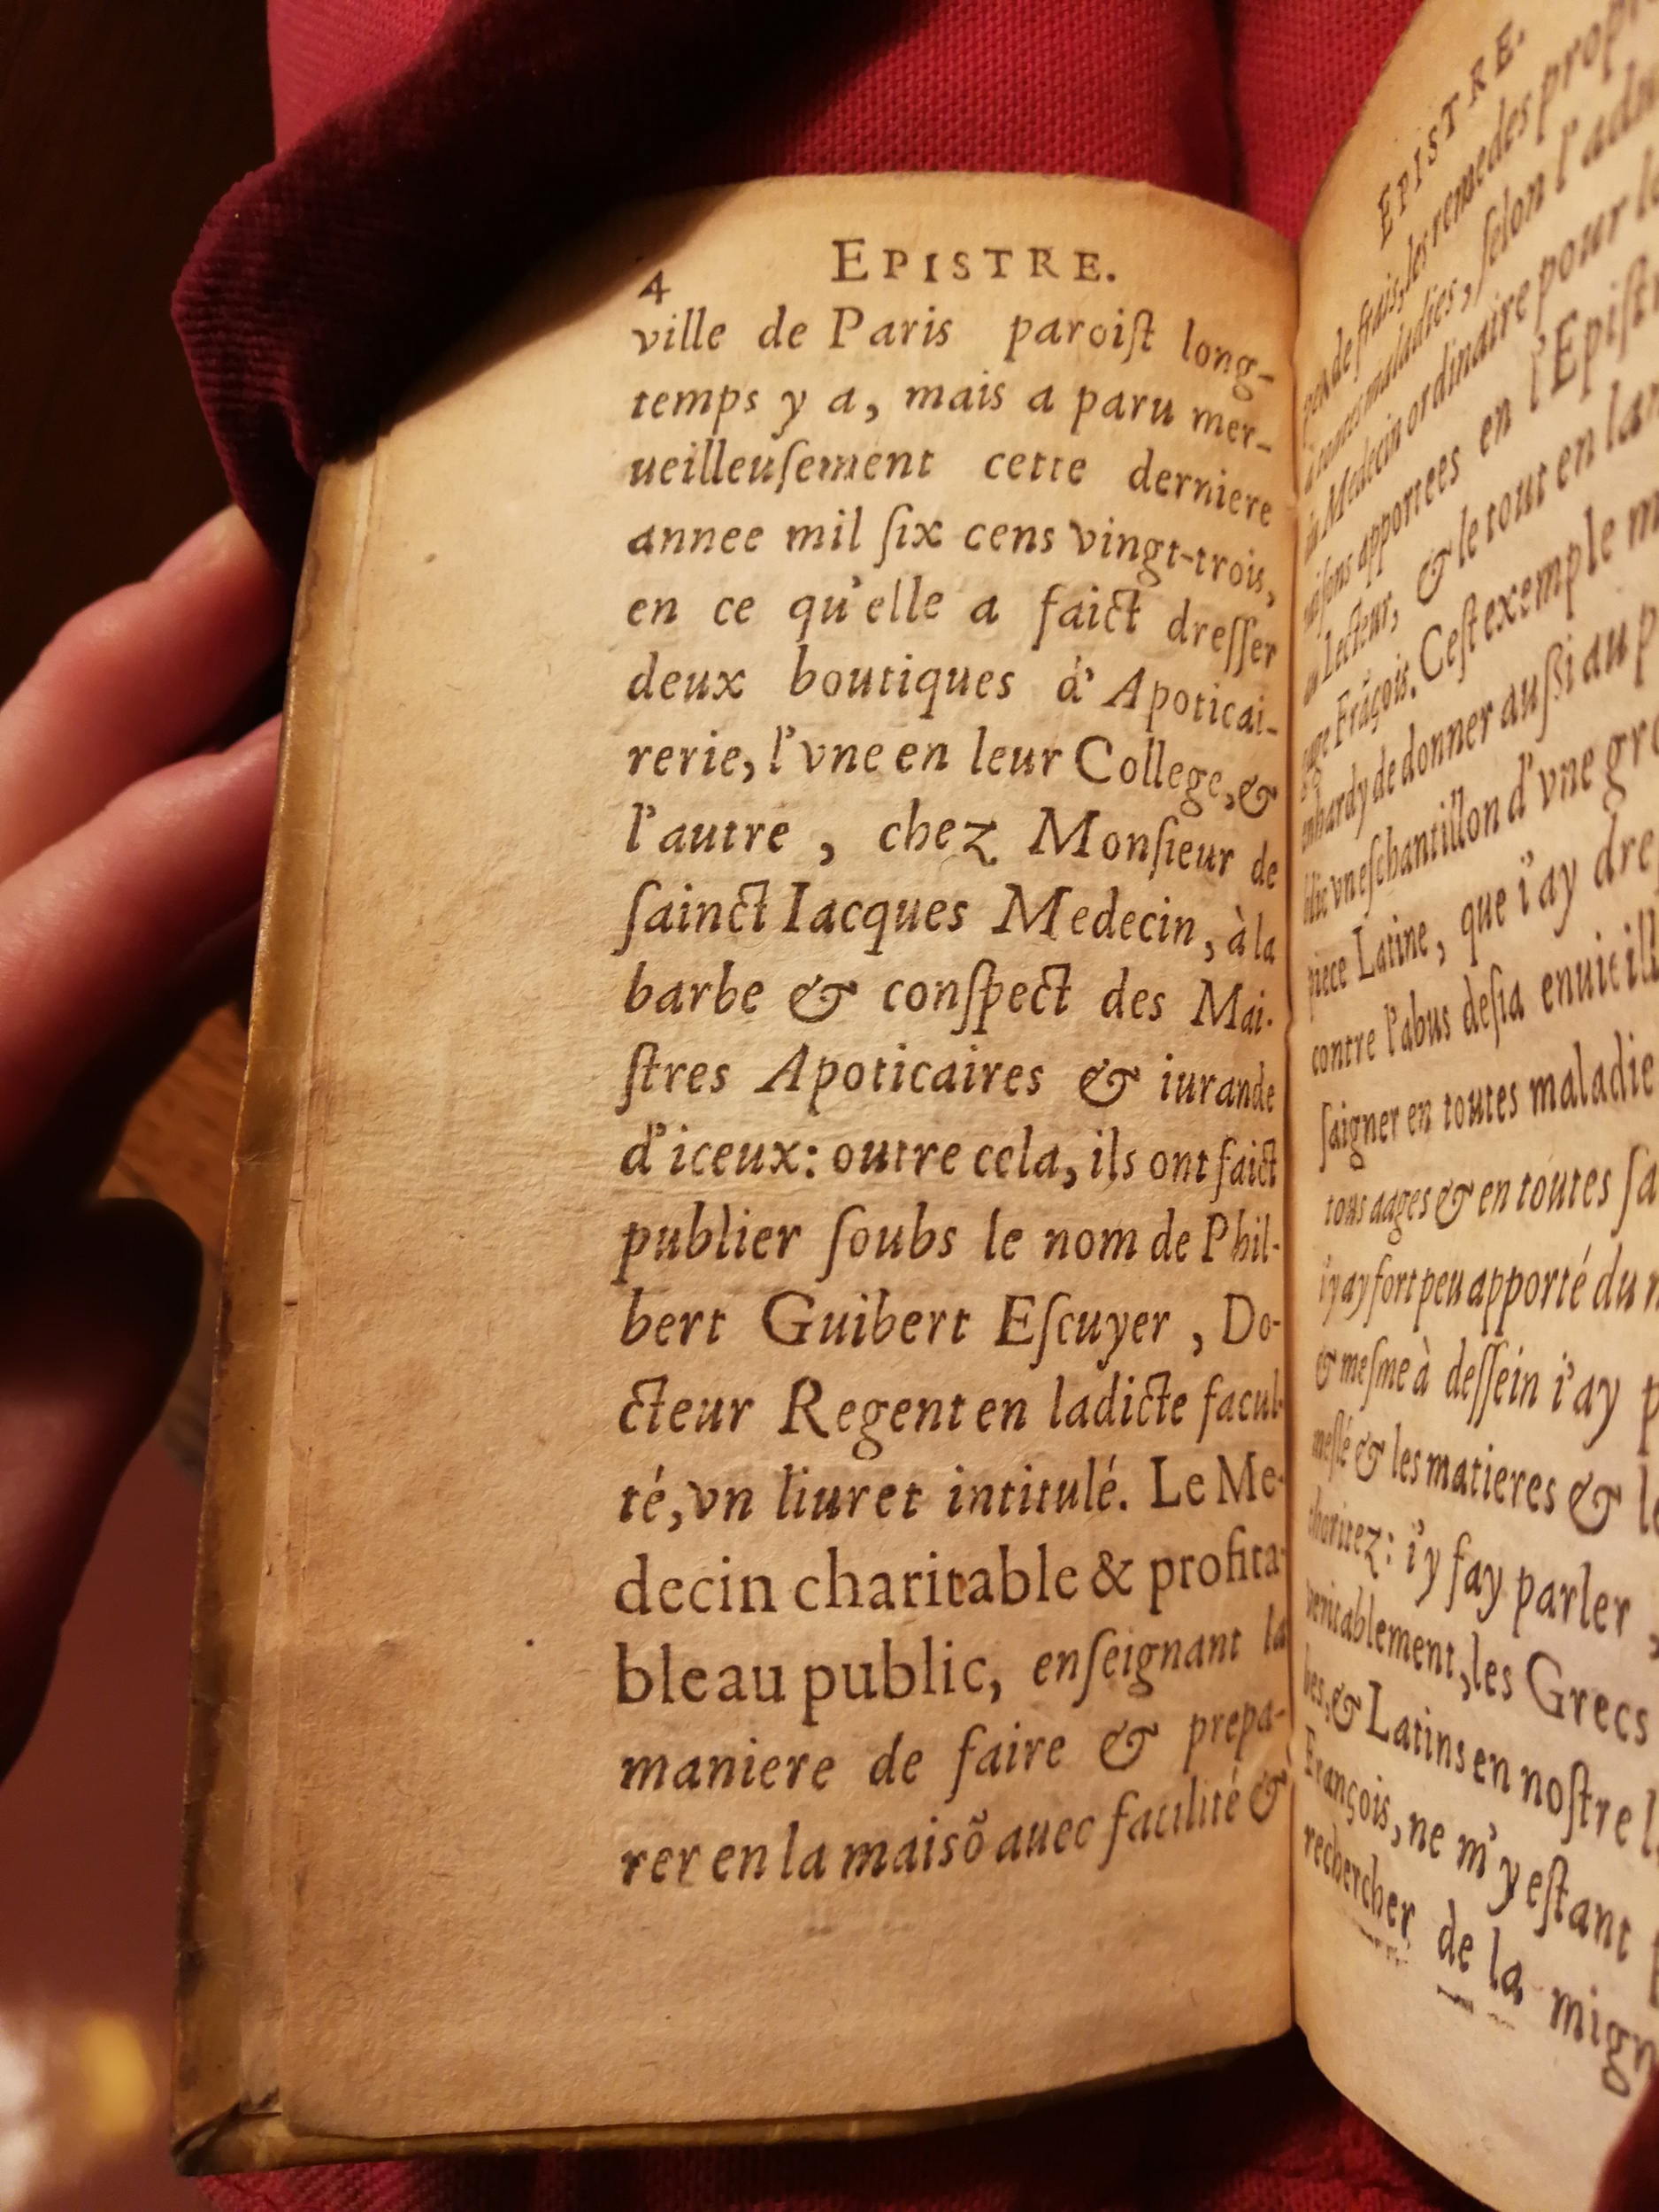 4 EPISTRE.
ville de Paris paroiſt long-
temps y a, mais a paru mer-
ueilleuſement cette derniere
annee mil ſix cens vingt-trois,
en ce qu'elle a faict dreſſer
deux boutiques d'Apoticai-
rerie, l'vne en leur College, &
l'autre, chez Monſieur de
ſainct Iacques Medecin, à la
barbe & conſpect des Mai-
ſtres Apoticaires & iurande
d'iceux: outre cela, ils ont faict
publier ſoubs le nom de Phil-
bert Guibert Eſcuyer, Do-
cteur Regent en ladicte facul-
té, vn liuret intitulé. Le Me-
decin charitable & profita-
ble au public, enſeignant la
maniere de faire & prepa-
rer en la maisõ auec facilité &
EPISTRE.
peu de frais, les remedes
à toutes maladies, ſelon l'
Medecin ordinaire pour
apportees en l'
Lecteur, & le tout en
Frãçois. Ceſt exemple
de donner auſſi au
vn eſchantillon d'vne
piece Latine, que i'ay
contre l'abus deſia
ſaigner en toutes maladie
tous aages & en toutes
i'y ay fort peu apporté du
& meſme à deſſein i'ay
meſlé & les matieres &
i'y fay parler
les Grecs
& Latins en noſtre
François, ne m'y eſtant
rechercher de la